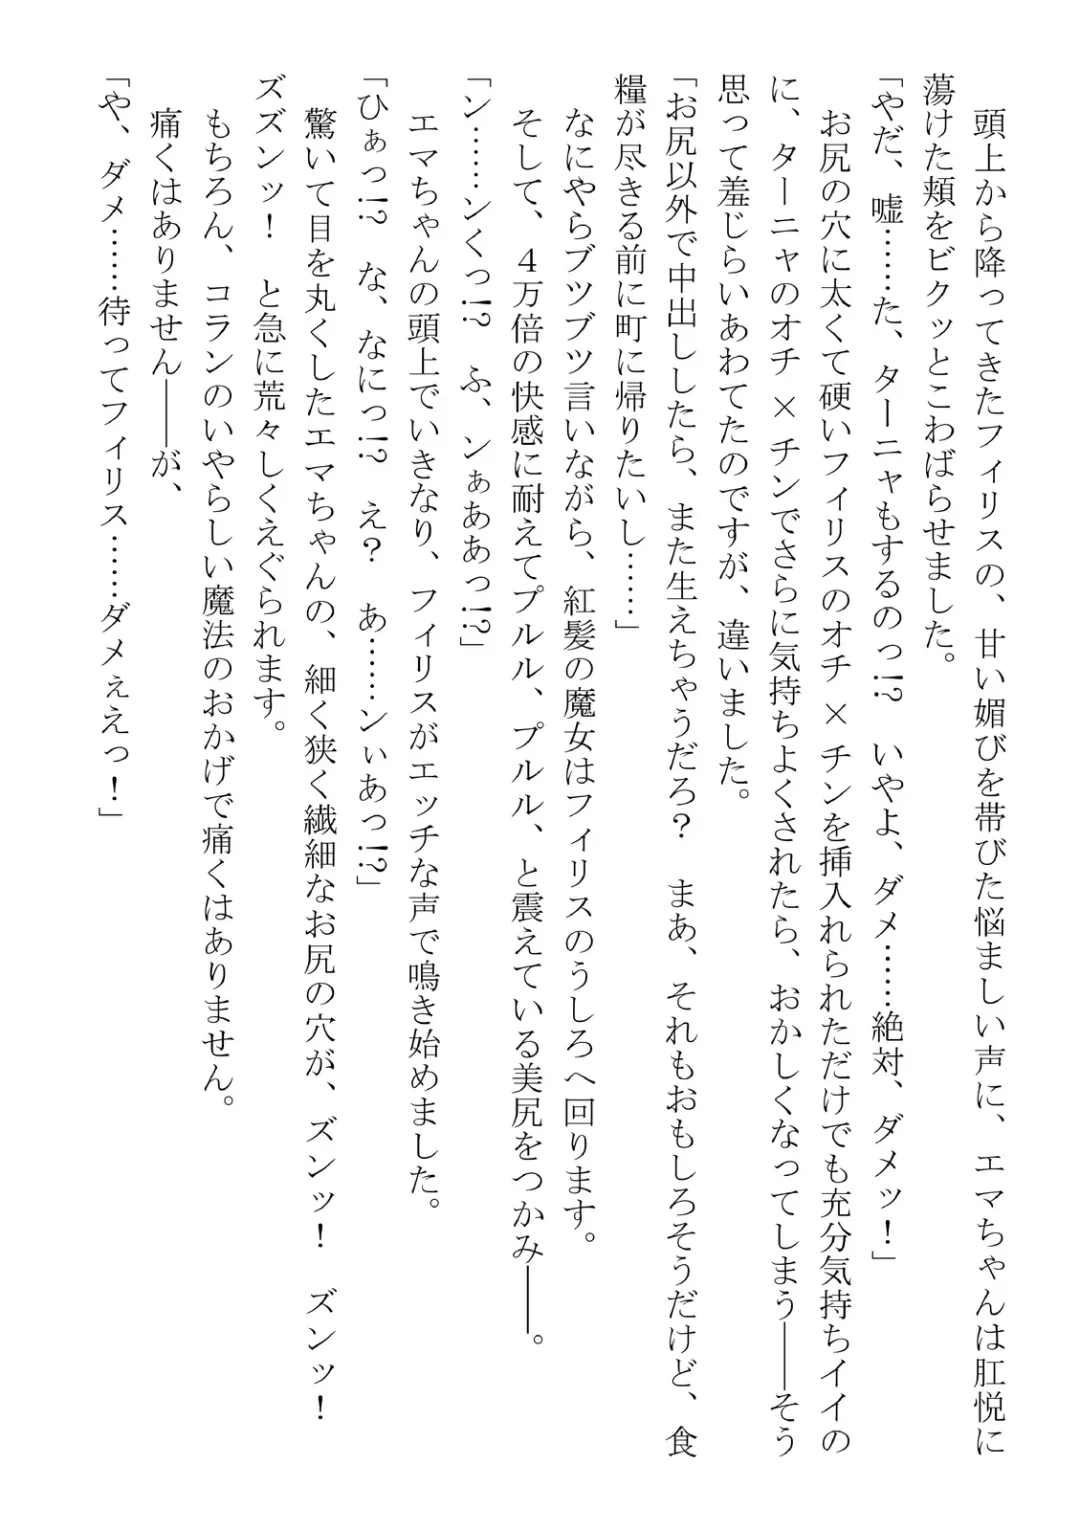 頭上から降ってきたフィリスの、甘い媚びを帯びた悩ましい声に、エマちゃんは肛悦に
蕩けた頬をビクッとこわばらせました。
「やだ、嘘……た、ターニャもするのっ!? いやよ、ダメ……絶対、ダメッ！」
お尻の穴に太くて硬いフィリスのオチ×チンを挿入れられただけでも充分気持ちイイの
に、ターニャのオチ×チンでさらに気持ちよくされたら、おかしくなってしまう――そう
思って羞じらいあわてたのですが、違いました。
「お尻以外で中出ししたら、また生えちゃうだろ？　まあ、それもおもしろそうだけど、食
糧が尽きる前に町に帰りたいし……」
なにやらブツブツ言いながら、紅髪の魔女はフィリスのうしろへ回ります。
そして、４万倍の快感に耐えてプルル、プルル、と震えている美尻をつかみ――。
「ン……ンくっ!?　ふ、ンぁああっ!?」
エマちゃんの頭上でいきなり、フィリスがエッチな声で鳴き始めました。
「ひぁっ!?　な、なにっ!?　え？　あ……ンぃあっ!?」
驚いて目を丸くしたエマちゃんの、細く狭く繊細なお尻の穴が、ズンッ！　ズンッ！
ズズンッ！　と急に荒々しくえぐられます。
もちろん、コランのいやらしい魔法のおかげで痛くはありません。
痛くはありません――が、
「や、ダメ……待ってフィリス……ダメぇえっ！」